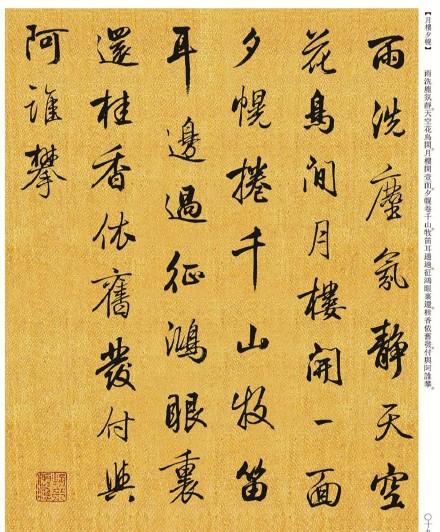 【月樓夕幌】
雨洗塵氛靜。天空花鳥閒。月樓開壹面。夕幌卷千山。牧笛耳邊過。征鴻眼裏還。桂香依舊發。付與阿誰攀。
雨洗塵氛靜天空
花鳥閒月樓開一面
夕幌捲千山牧笛
耳邊過征鴻眼裏
還桂香依舊發付與
阿誰攀